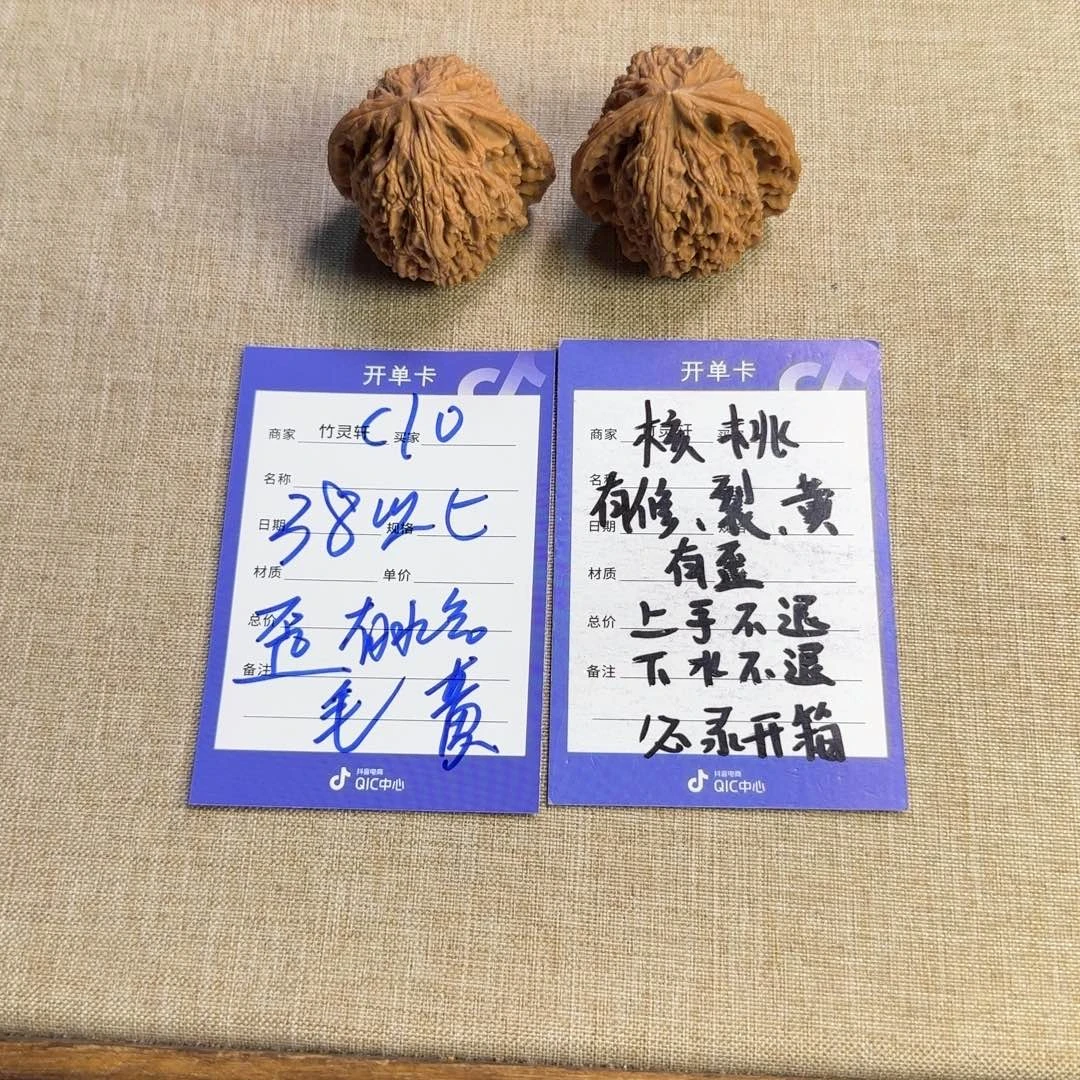 开单卡
商家 竹灵轩 买家
C10
名称
38以上
日期 规格
材质 单价
总价
歪 有水气
备注
毛 黄
抖音电商
QIC中心
开单卡
商家
核桃
有修、裂、黄
日期
有歪
材质
总价
上手不退
备注
下水不退
必录开箱
抖音电商
QIC中心